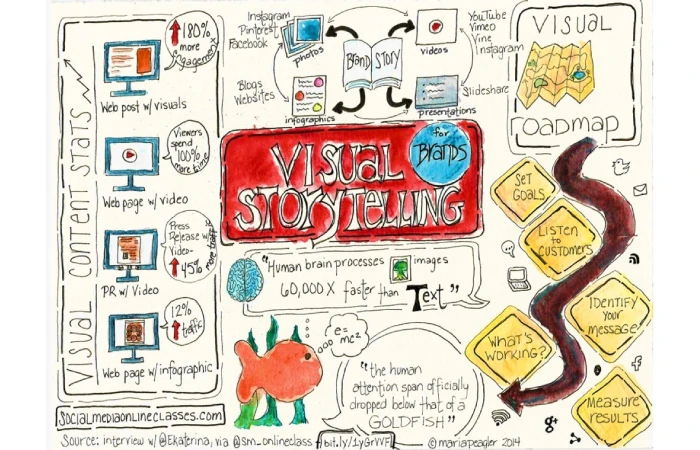 VISUAL CONTENT STATS
180%
more
engagement
Web post w/ visuals
Viewers
spend
100%
more time
Web page w/ video
Press
Release w/
Video-
45%
more traffic
PR w/ Video
12%
traffic
Web page w/ infographic
Socialmediaonlineclasses.com
Instagram
Pinterest
Facebook
photos
Blogs
Websites
infographics
BRAND STORY
videos
YouTube
Vimeo
Vine
Instagram
presentations
Slideshare
VISUAL
STORYTELLING
for
Brands
"Human brain processes images
60,000X faster than Text"
e=
mc²
"the human
attention span officially
dropped below that of a
GOLDFISH"
VISUAL
ROADMAP
SET
GOALS
LISTEN
to
CUSTOMERS
IDENTIFY
your
MESSAGE
WHAT'S
WORKING?
MEASURE
RESULTS
f
g+
Source: interview w/ @Ekaterina, via @sm_onlineclass bit.ly/1yGrVVF © mariapeagler 2014